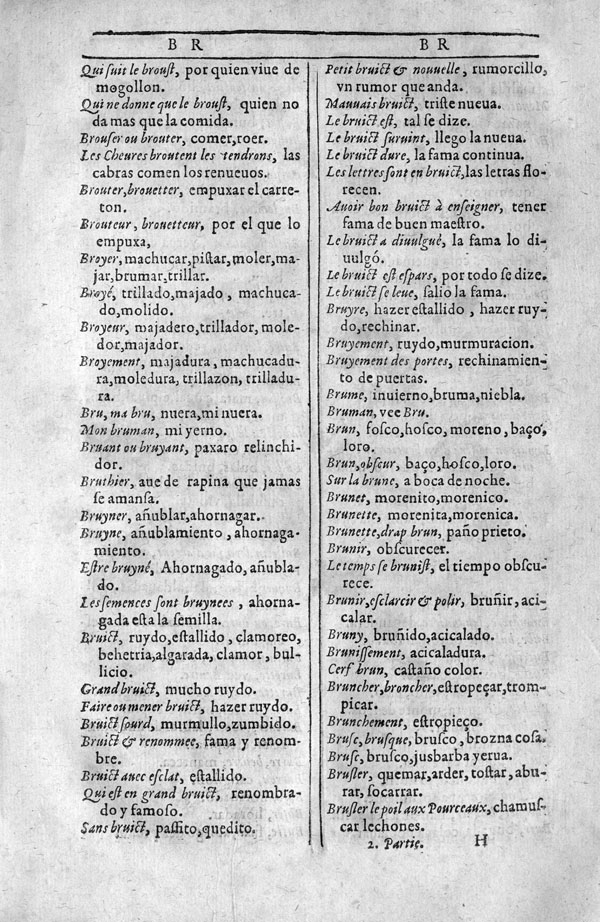 B R
Qui suit le broust, por quien viue de
mogollon.
Qui ne donne que le broust, quien no
da mas que la comida.
Brouser ou brouter, comer, roer.
Les Cheures broutent les tendrons, las
cabras comen los renueuos.
Brouter, brouetter, empuxar el carre-
ton.
Brouteur, brouetteur, por el que lo
empuxa,
Broyer, machucar, pistar, moler, ma-
jar, brumar, trillar.
Broyé, trillado, majado, machuca-
do, molido.
Broyeur, majadero, trillador, mole-
dor, majador.
Broyement, majadura, machucadu-
ra, moledura, trillazon, trilladu-
ra.
Bru, ma bru, nuera, mi nuera.
Mon bruman, mi yerno.
Bruant ou bruyant, paxaro relinchi-
dor.
Bruthier, aue de rapina que jamas
se amansa.
Bruyner, añublar, ahornagar.
Bruyne, añublamiento, ahornaga-
miento.
Estre bruyné, Ahornagado, añubla-
do.
Les semences sont bruynees, ahorna-
gada esta la semilla.
Bruict, ruydo, estallido, clamoreo,
behetria, algarada, clamor, bul-
licio.
Grand bruict, mucho ruydo.
Faire ou mener bruict, hazer ruydo.
Bruict sourd, murmullo, zumbido.
Bruict & renommee, fama y renom-
bre.
Bruict auec esclat, estallido.
Qui est en grand bruict, renombra-
do y famoso.
Sans bruict, passito, quedito.
B R
Petit bruict & nouuelle, rumorcillo,
vn rumor que anda.
Mauuais bruict, triste nueua.
Le bruict est, tal se dize.
Le bruict suruint, llego la nueua.
Le bruict dure, la fama continua.
Les lettres sont en bruict, las letras flo-
recen.
Auoir bon bruict à enseigner, tener
fama de buen maestro.
Le bruict a diuulgué, la fama lo di-
uulgó.
Le bruict est espars, por todo se dize.
Le bruict se leue, salio la fama.
Bruyre, hazer estallido, hazer ruy-
do, rechinar.
Bruyement, ruydo, murmuracion.
Bruyement des portes, rechinamien-
to de puertas.
Brume, inuierno, bruma, niebla.
Bruman, vee Bru.
Brun, fosco, hosco, moreno, baço,
loro.
Brun, obscur, baço, hosco, loro.
Sur la brune, a boca de noche.
Brunet, morenito, morenico.
Brunette, morenita, morenica.
Brunette, drap brun, paño prieto.
Brunir, obscurecer.
Le temps se brunist, el tiempo obscu-
rece.
Brunir, esclarcir & polir, bruñir, aci-
calar.
Bruny, bruñido, acicalado.
Brunissement, acicaladura.
Cerf brun, castaño color.
Bruncher, broncher, estropeçar, trom-
picar.
Brunchement, estropieço.
Brusc, brusque, brusco, brozna cosa.
Brusc, brusco, jusbarba yerua.
Brusler, quemar, arder, tostar, abu-
rar, socarrar.
Brusler le poil aux Pourceaux, chamus-
car lechones.
2. Partie. H